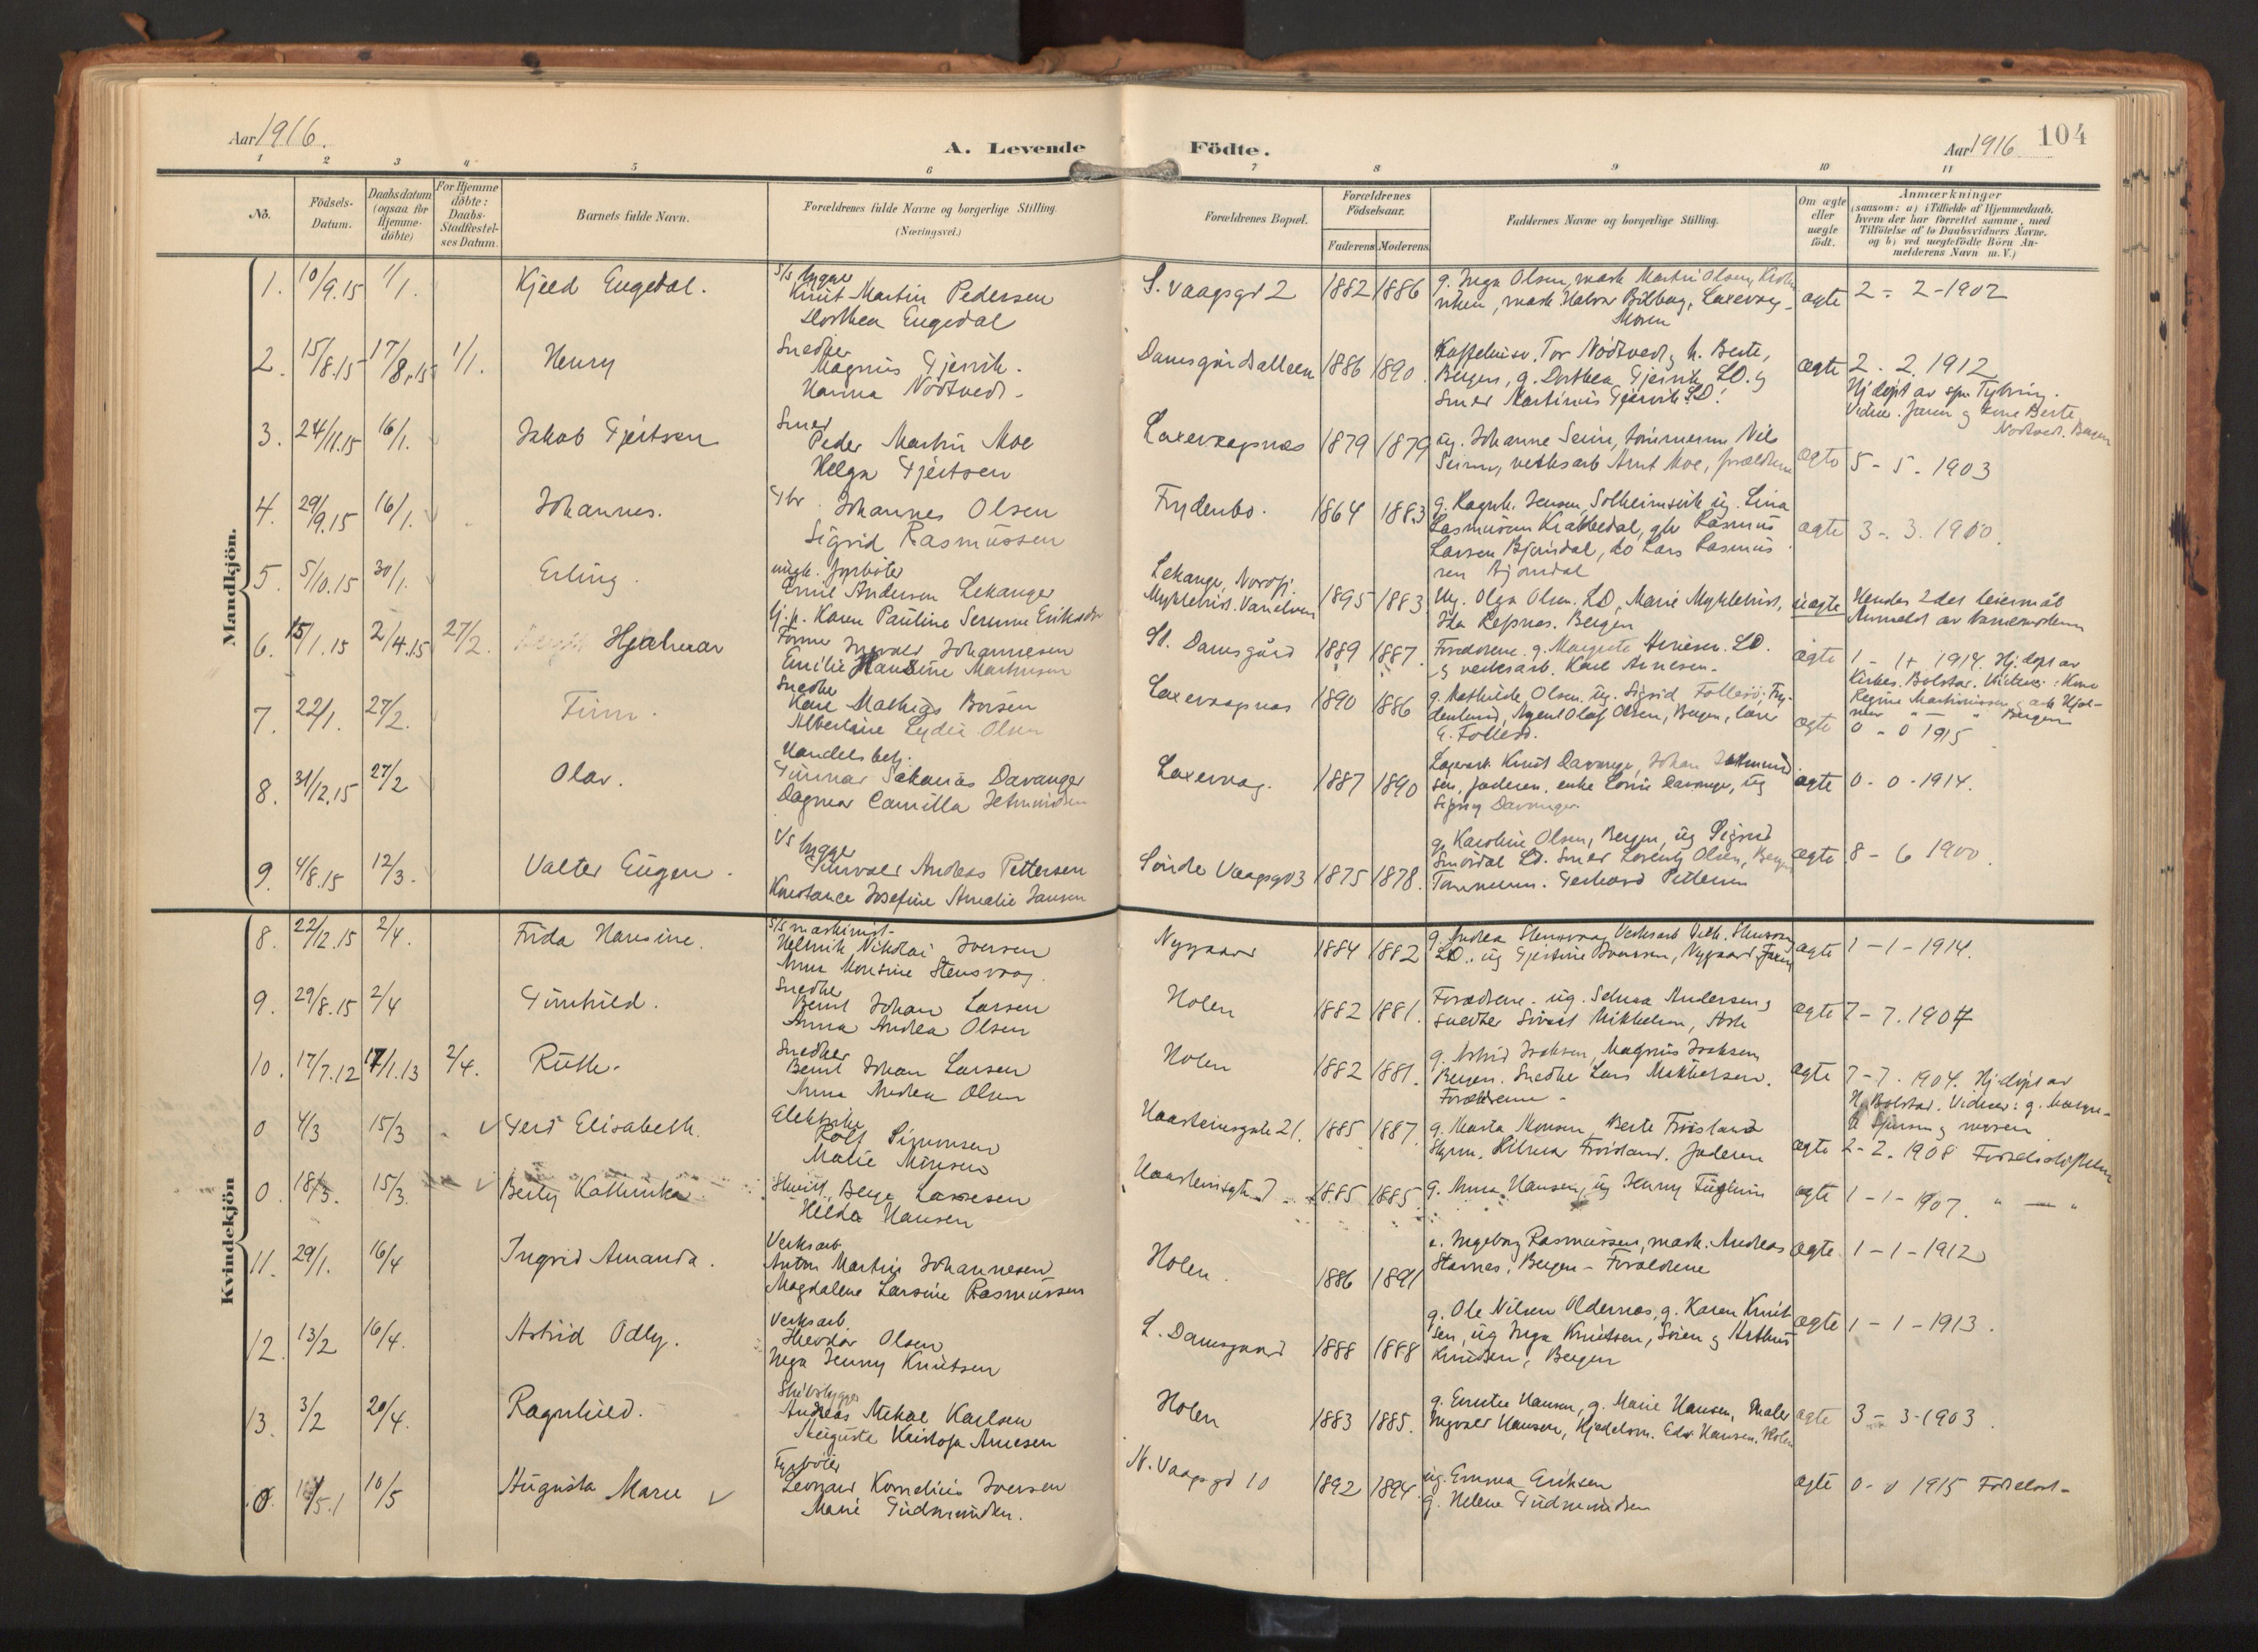 Aar 1916.
A. Levende
Födte.
Aar 1916.
104
1 2 3 4 5 6 7 8 9 10 11
No.
Födsels-Datum.
Daabsdatum (ogsaa for Hjemme-döbte)
For Hjemme döbte: Daabs-Stadfæstel-ses Datum.
Barnets fulde Navn.
Forældrenes fulde Navne og borgerlige Stilling.
(Næringsvei.)
Forældrenes Bopæl.
Forældrenes Födselsaar.
Faderens Moderens
Faddernes Navne og borgerlige Stilling.
Om ægte eller uægte födt.
Anmærkninger
(saasom: a) i Tilfælde af Hjemmedaab.
hvem der har forrettet samme, med
Tilföielse af to Daabsvidners Navne.
og b) ved uægtefödte Börn An-
melderens Navn m. V.)
Mandkjön.
1. 10/9.15 1/1. Kjell Engedal.
S/s bygger
Knut Martin Pedersen
Dorthea Engedal
S. Vaagsgt 2 1882 1886
g. Inga Olsen, mask Martin Olsen,
mask Halvor Laxevaag
Moren
ægte 2 - 2 - 1902
2. 15/8.15 17/8.15 1/1. Henry
Snedker
Magnus Gjervik.
Hanna Nödtvedt.
Damsgårdsalleen 1886 1890.
Tor Nödtvedt, h. Berte,
Bergen, g. Dorthea Gjervik LD. og
Smed Martinus Gjervik LD.
ægte 2 - 2. 1912
Hj döpt av
Berte
Nödtvedt. Bergen
3. 24/11.15 16/1. Jakob Gjertsen
Smed
Peder Martin Moe
Helga Gjertsen
Laxevaagnes 1879 1879
ug. Johanne Seim, tömmerm Nils
Seim, verksarb Arnt Moe, forældrene
ægte 5 - 5. 1903
4. 29/9.15 16/1. Johannes.
Johannes Olsen
Sigrid Rasmussen
Frydenbo. 1864 1883
g. Ragnh. Jensen, Solheimsvik ug. Lina
Rasmussen Krabbedal, gbr Rasmus
Larsen Bjørndal, do Lars Rasmus
sen Bjørndal
ægte 3 - 3. 1900.
5. 5/10.15 30/1. Erling.
ungk. fyrböter
Emil Andersen Lekanger
Karen Pauline Eriksdtr
Lekanger, Nordfj.
Myklebust. Vanelven 1895 1883
Ug. Olga Olsen. LD, Marie Myklebust,
Ida Refsnes. Bergen
uægte Hendes 2det leiermål
Anmeldt av barnemoderen
6. 15/1.15 2/4.15 27/2. Hjalmar
Former Ingvald Johannesen
Emilie Hansine Martinsen
St. Damsgård 1889 1887.
Forældrene. g. Margrete Arnesen. LD.
og verksarb. Karl Arnesen.
ægte 1 - 1+ 1914. Hj. döpt av
Kirkes. Bolstad. Vidner: Kone
Regine Martinussen
Bergen
7. 22/1. 27/2. Finn.
Snedker
Karl Mathias Börsen
Albertine Lydie Olsen
Laxevaagnes 1890 1886
g. Mathilde Olsen. ug. Sigrid Follesö,
denlund, Agent Olaf Olsen, Bergen, lærer
E. Follesö.
ægte 0 - 0 1915
8. 31/12.15 27/2 Olav.
Handelsbetj.
Gunnar Sakarias Davanger
Dagmar Camilla
Laxevaag. 1887 1890
Knut Davanger, Johan
sen, faderen, enke Davanger, ug
Signy Davanger
ægte 0 - 0 - 1914.
9. 4/8.15 12/3. Valter Eugen.
S/s bygger
Andreas Pettersen
Konstance Josefine Amalie Jansen
Söndre Vaagsgt 3 1875 1878.
g. Karoline Olsen, Bergen, ug Sigrid
Smördal LD. Smed Lorentz Olsen, Bergen
Tömmerm. Gerhard Pettersen
ægte 8 - 6 1900.
Kvindekjön
8. 22/12.15 2/4. Frida Hansine.
S/s maskinist
Helmik Nikolai Iversen
Anna Monsine Stensvaag.
Nygaard 1884 1882
g. Andrea Stensvaag, Verksarb Stensvaag
LD., ug Gjertine Iversen, Nygaard,
ægte 1 - 1 - 1914.
9. 29/8.15 2/4 Gunhild.
Snedker
Bernt Johan Larsen
Anna Andrea Olsen
Holen 1882 1881.
Forældrene. ug. Selma Andersen og
snedker Sivert Mikkelsen, Ask
ægte 7 - 7. 1904
10. 17/7.12 17/1.13 2/4. Ruth.
Snedker
Bernt Johan Larsen
Anna Andrea Olsen
Holen 1882 1881.
g. Astrid Isaksen, Magnus Isaksen
Bergen. Snedker Lars Mikkelsen.
Forældrene
ægte 7 - 7. 1904. Hj. döpt av
H. Bolstad. Vidner: g.
og moren
0 4/3 15/3 Gerd Elisabeth.
Elektriker
Rolf Simonsen
Marie Monsen
Haasteinsgate 21. 1885 1887.
g. Marta Monsen, Berte Fröisland
Hilmar Fröisland. faderen
ægte 2 - 2. 1908 Födselsstiftelsen
0. 18/3. 15/3. Betty Kathinka
Birger
Helda Hansen
Haasteinsgt. 7 1885 1885
g. Anna Hansen, ug Jenny
ægte 1 - 1 - 1907. " — "
11. 29/1. 16/4 Ingrid Amanda.
Verksarb
Anton Martin Johannesen
Magdalene Larsine Rasmussen
Holen. 1886 1891
e. Ingeborg Rasmussen, mask. Andreas
Stavnes. Bergen - Forældrene
ægte. 1 - 1 - 1912
12. 13/2 16/4. Astrid Odly.
Verksarb.
Theodor Olsen
Inga Jenny Knutsen
L. Damsgaard 1888 1888
g. Ole Nilsen Oldernes, g. Karen Knut
sen, ug Inga Knutsen, Sören og Arthur
Knudsen, Bergen
ægte 1 - 1 - 1913.
13. 3/2 20/4. Ragnhild.
Skibsbygger
Andreas Mikal Karlsen
Augusta Kristofa Arnesen
Holen 1883 1885.
g. Hansen, g. Marie Hansen, Maler
Ingvald Hansen, Kjedelsm. Edv. Hansen. Holen
ægte 3 - 3 - 1903.
0. 10/5 Augusta Marie
Fyrböter
Leonard Kornelius Iversen
Marie Gudmundsen.
N. Vaagsgd 10 1892 1894.
ug. Emma Eriksen
g. Helene Gudmundsen
ægte 0 - 0 1915 Födselsst-